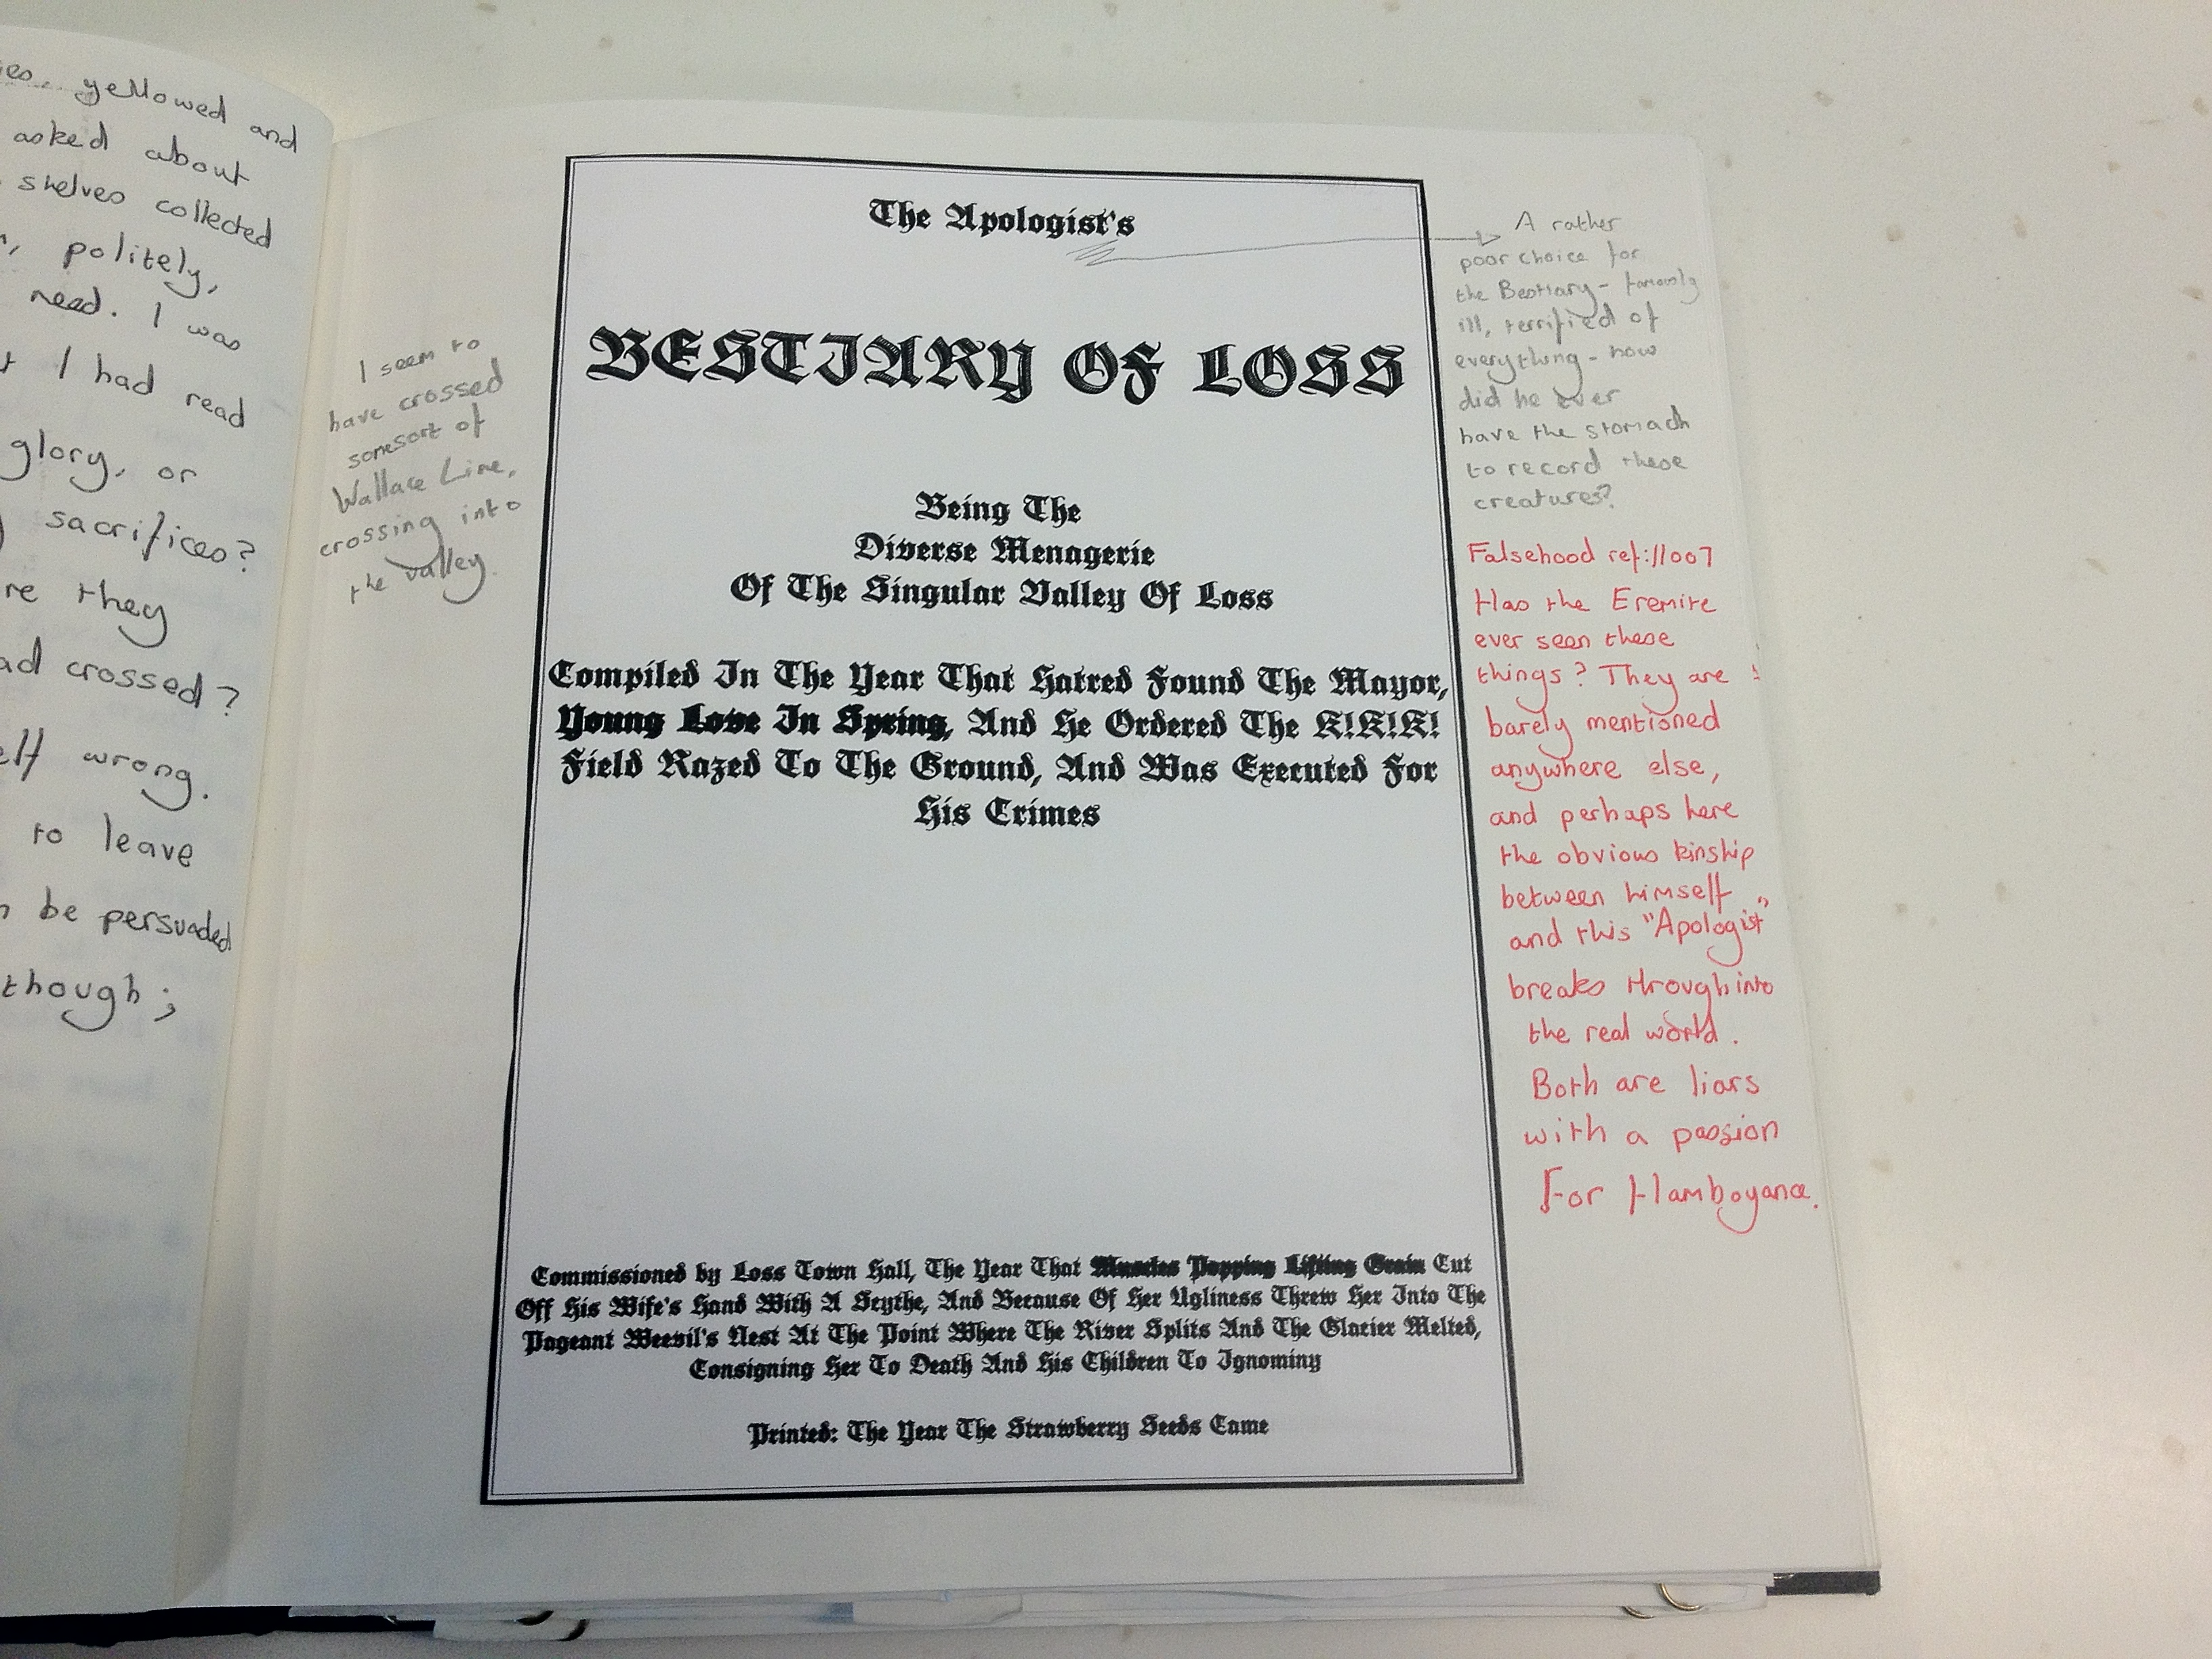 yellowed and
asked about
shelves collected
politely,
need. I was
I had read
glory, or
sacrifices?
they
crossed?
wrong.
to leave
be persuaded
though;
I seem to
have crossed
somesort of
Wallace Line,
crossing into
the valley.
The Apologist's
BESTIARY OF LOSS
Being The
Diverse Menagerie
Of The Singular Valley Of Loss
Compiled In The Year That Hatred Found The Mayor,
Young Love In Spring, And He Ordered The K!K!K!
Field Razed To The Ground, And Was Executed For
His Crimes
Commissioned by Loss Town Hall, The Year That Muscles Popping Lifting Grain Cut
Off His Wife's Hand With A Scythe, And Because Of Her Ugliness Threw Her Into The
Pageant Weevil's Nest At The Point Where The River Splits And The Glacier Melted,
Consigning Her To Death And His Children To Ignominy
Printed: The Year The Strawberry Seeds Came
A rather
poor choice for
the Bestiary - famously
ill, terrified of
everything - how
did he ever
have the stomach
to record these
creatures?
Falsehood ref://007
Has the Eremite
ever seen these
things? They are
barely mentioned
anywhere else,
and perhaps here
the obvious kinship
between himself
and this "Apologist"
breaks through into
the real world.
Both are liars
with a passion
For flamboyance.